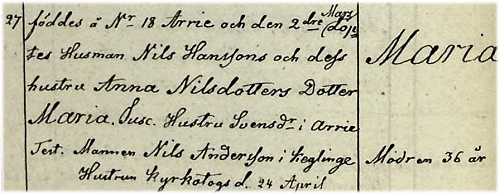 27 föddes å Nr 18 Arrie och den 2dre Mars
tes Husman Nils Hanssons och dess Maria
hustru Anna Nilsdotters Dotter
Maria. Susc. Hustru Svensdr i Arrie
Test. Mannen Nils Andersson i Keglinge Modren 36 år
Hustrun Kyrkotogs d. 24 April